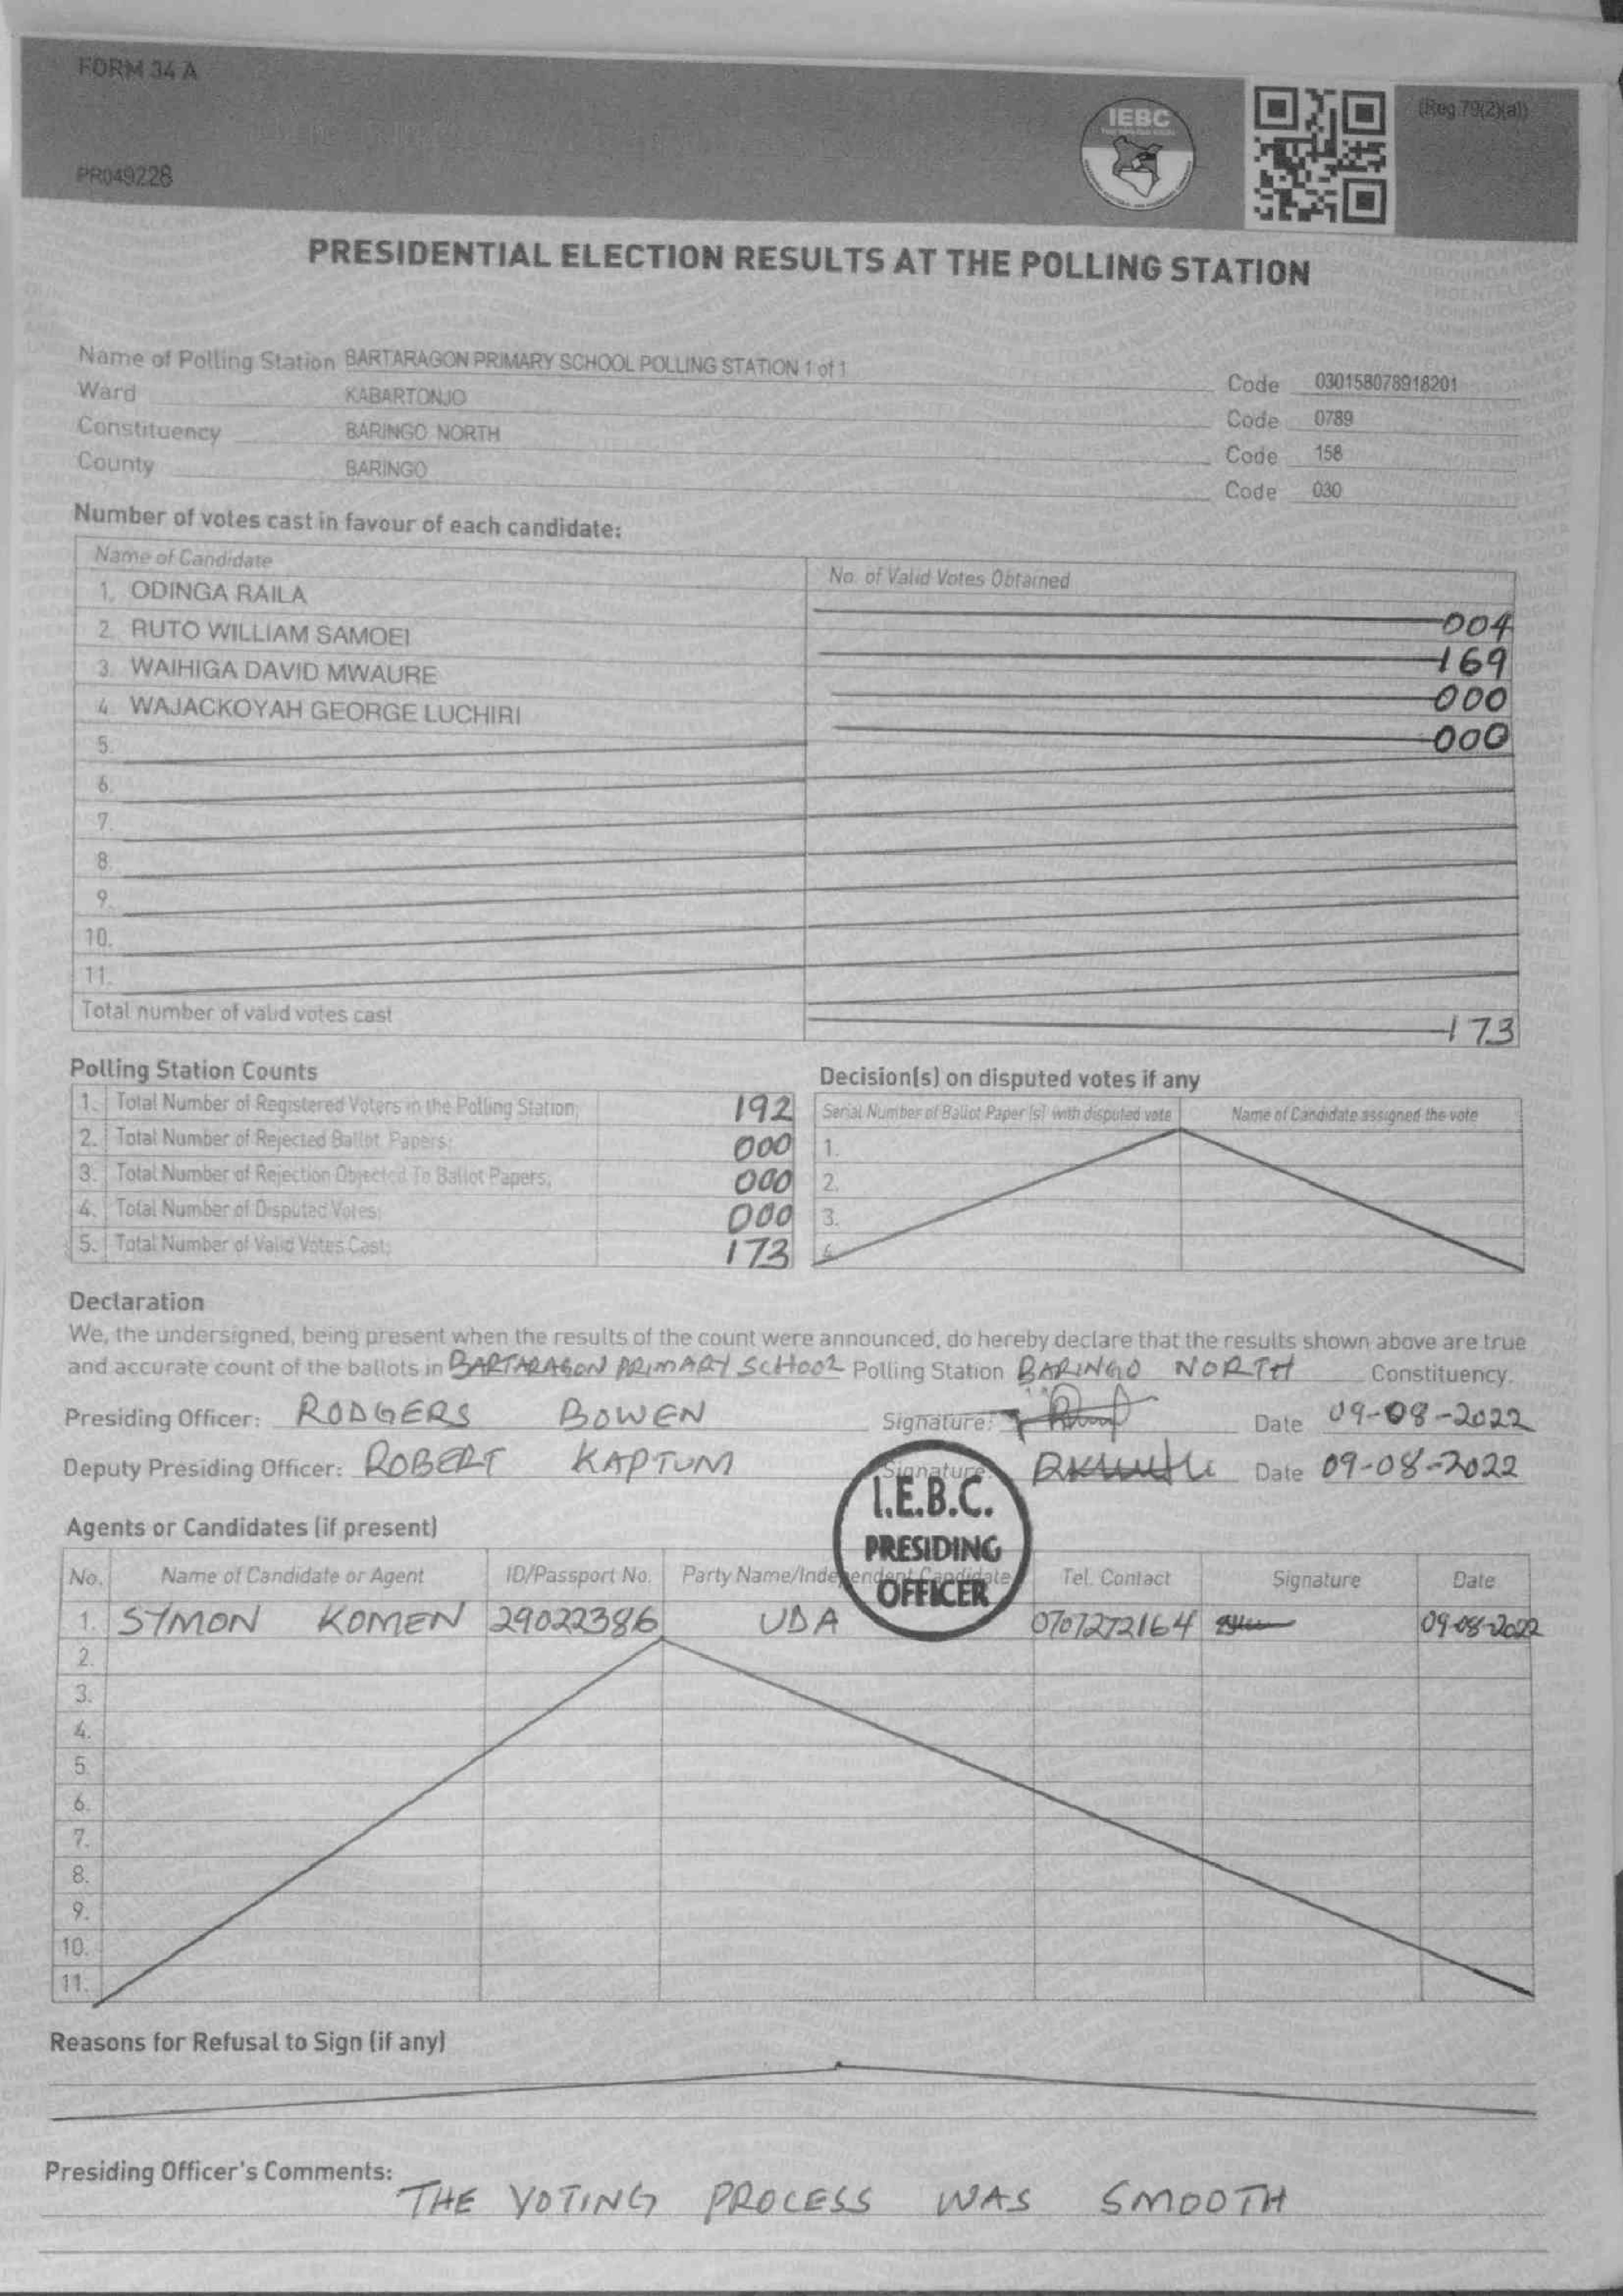 FORM 34 A
(Reg.79(2)(a))
IEBC
PR049228
PRESIDENTIAL ELECTION RESULTS AT THE POLLING STATION
Name of Polling Station BARTARAGON PRIMARY SCHOOL POLLING STATION 1 of 1 Code 030158078918201
Ward KABARTONJO Code 0789
Constituency BARINGO NORTH Code 158
County BARINGO Code 030
Number of votes cast in favour of each candidate:
Name of Candidate No. of Valid Votes Obtained
1. ODINGA RAILA 004
2. RUTO WILLIAM SAMOEI 169
3. WAIHIGA DAVID MWAURE 000
4. WAJACKOYAH GEORGE LUCHIRI 000
5.
6.
7.
8.
9.
10.
11.
Total number of valid votes cast 173
Polling Station Counts
1. Total Number of Registered Voters in the Polling Station; 192
2. Total Number of Rejected Ballot Papers; 000
3. Total Number of Rejection Objected To Ballot Papers; 000
4. Total Number of Disputed Votes; 000
5. Total Number of Valid Votes Cast; 173
Decision(s) on disputed votes if any
Serial Number of Ballot Paper (s) with disputed vote Name of Candidate assigned the vote
1.
2.
3.
4.
Declaration
We, the undersigned, being present when the results of the count were announced, do hereby declare that the results shown above are true
and accurate count of the ballots in BARTARAGON PRIMARY SCHOOL Polling Station BARINGO NORTH Constituency.
Presiding Officer: RODGERS BOWEN Signature: Date 09-08-2022
Deputy Presiding Officer: ROBERT KAPTUM Signature Date 09-08-2022
I.E.B.C.
PRESIDING
OFFICER
Agents or Candidates (if present)
No. Name of Candidate or Agent ID/Passport No. Party Name/Independent Candidate Tel. Contact Signature Date
1. SYMON KOMEN 29022386 UDA 0707272164 09-08-2022
2.
3.
4.
5.
6.
7.
8.
9.
10.
11.
Reasons for Refusal to Sign (if any)
Presiding Officer's Comments:
THE VOTING PROCESS WAS SMOOTH